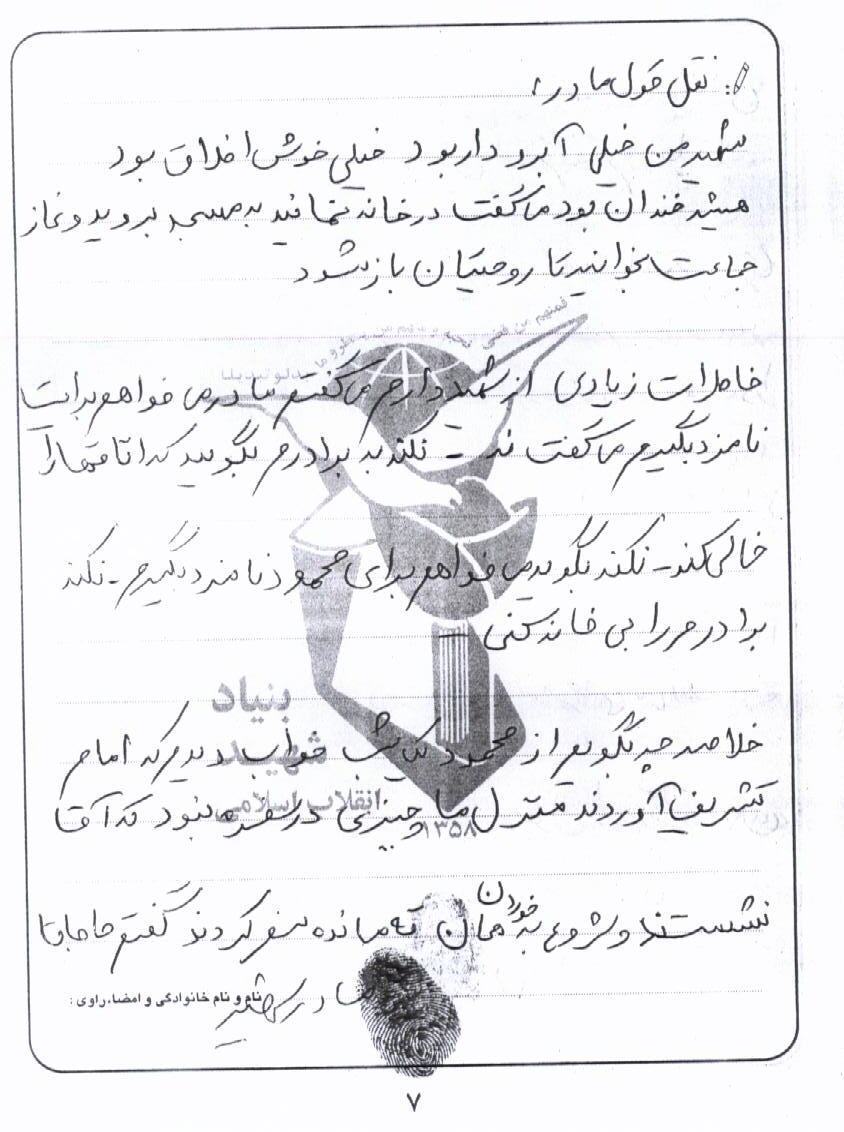 نقل قول مادر:
شهید من خیلی آبرو دار بود خیلی خوش اخلاق بود
همیشه خندان بود می گفت در خانه نمانید به مسجد بروید و نماز
جماعت بخوانید تا روحیتان باز شود
فمنهم من قضی نحبه و منهم من ینتظر و ما بدلوا تبدیلا
خاطرات زیادی از شهید دارم می گفتم مادر می خواهم برایت
نامزد بگیرم می گفت نه - نکند به برادرم بگویید که اتاقها را
خالی کند - نکند بگوید می خواهم برای محمود نامزد بگیرم - نکند
برادرم را بی خانه کنی -
بنیاد
شهید
انقلاب اسلامی
۱۳۵۸
خلاصه چه بگویم از محمود یک شب خواب دیدم که امام
تشریف آوردند منزل ما چیزی در سفره نبود که آقا
نشستند و شروع به خوردن همان ته مانده سفر کردند گفتم حاج آقا
نام و نام خانوادگی و امضاء راوی:
مادر شهید
۷